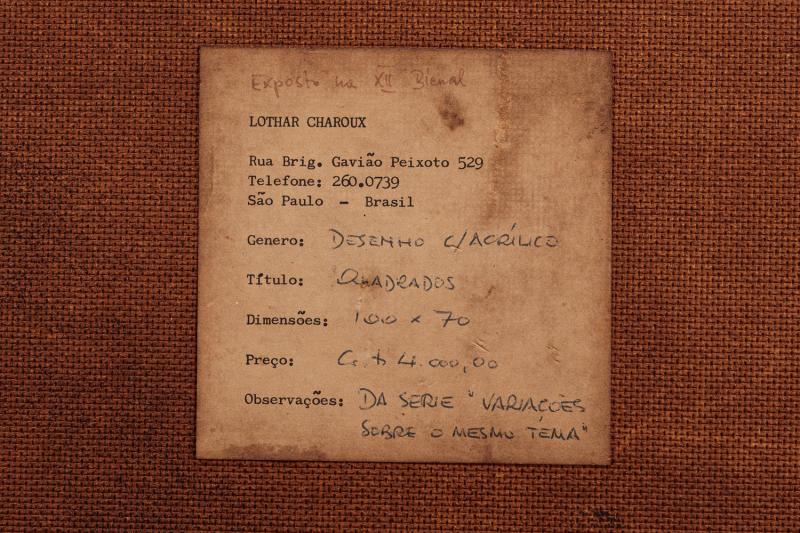 Exposto na XII Bienal
LOTHAR CHAROUX
Rua Brig. Gavião Peixoto 529
Telefone: 260.0739
São Paulo - Brasil
Genero: DESENHO C/ACRÍLICO
Título: QUADRADOS
Dimensões: 100 x 70
Preço: Cr$ 4.000,00
Observações: DA SERIE "VARIAÇÕES
SOBRE O MESMO TEMA"